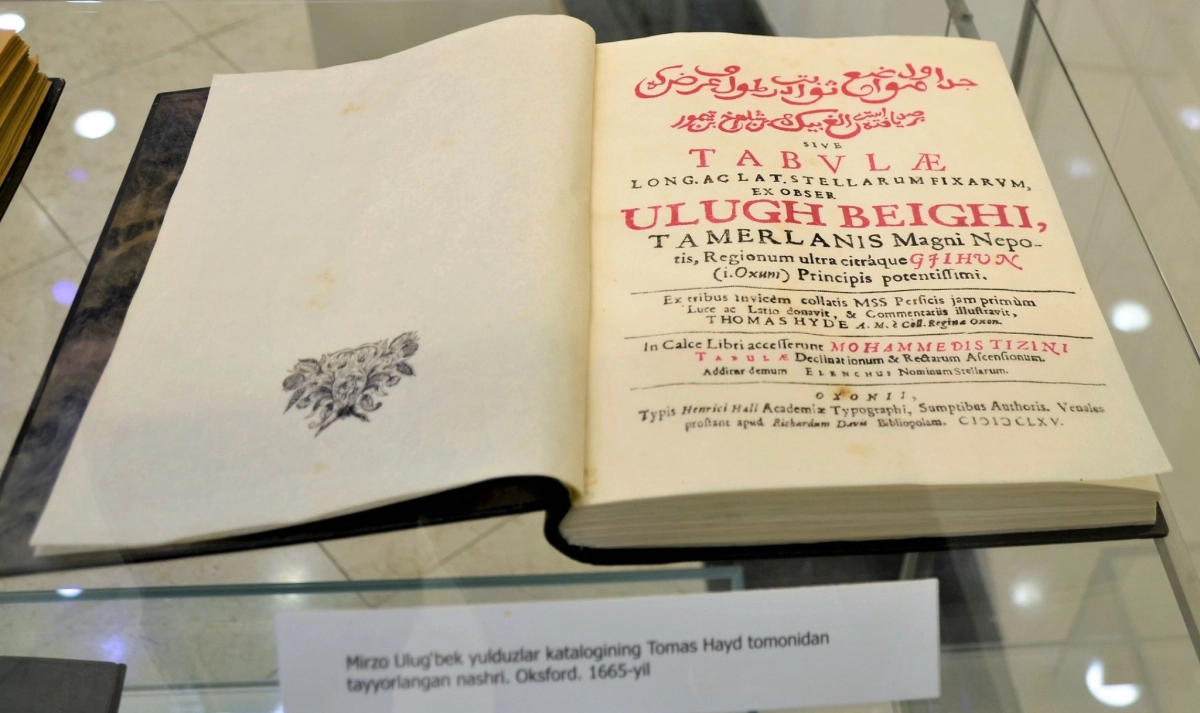 جداول مواضع ثوابت در طول و عرض که
برصد یافته است الغ بیک بن شاهرخ بن تیمور
SIVE
TABVLÆ
LONG. AC LAT. STELLARUM FIXARVM,
EX OBSER
ULUGH BEIGHI,
TAMERLANIS Magni Nepo-
tis, Regionum ultra citráque GJIHUN
(i. Oxum) Principis potentissimi.
Ex tribus invicèm collatis MSS Persicis jam primùm
Luce ac Latio donavit, & Commentariis illustravit,
THOMAS HYDE A. M. è Coll. Reginæ Oxon.
In Calce Libri accesserunt MOHAMMEDIS TIZINI
TABULÆ Declinationum & Rectarum Ascensionum.
Additur demum ELENCHUS Nominum Stellarum.
OXONII,
Typis Henrici Hall Academiæ Typographi, Sumptibus Authoris. Venales
prostant apud Richardum Davis Bibliopolam. CIƆIƆCLXV.
Mirzo Ulug'bek yulduzlar katalogining Tomas Hayd tomonidan
tayyorlangan nashri. Oksford. 1665-yil